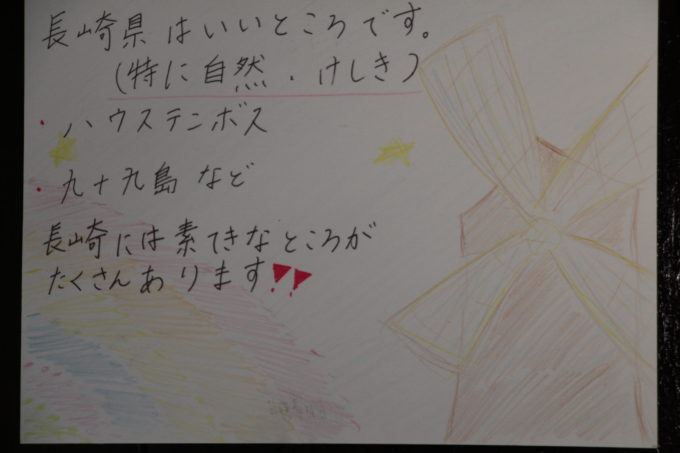 長崎県はいいところです。
(特に自然・けしき)
・ハウステンボス
・九十九島など
長崎には素てきなところが
たくさんあります!!